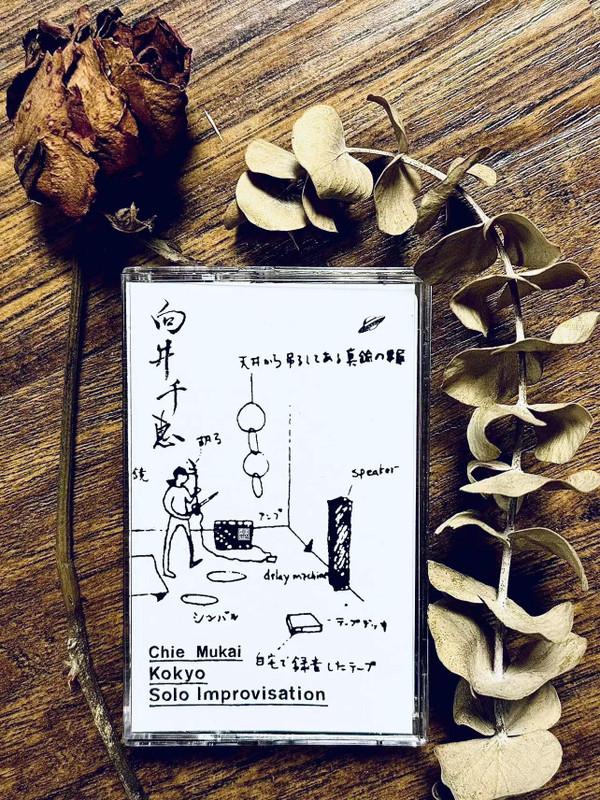 向井千恵
天井から吊るしてある真鍮の輪
胡弓
鏡
speaker
アンプ
delay machine
シンバル
テープデッキ
自宅で録音したテープ
Chie Mukai
Kokyo
Solo Improvisation